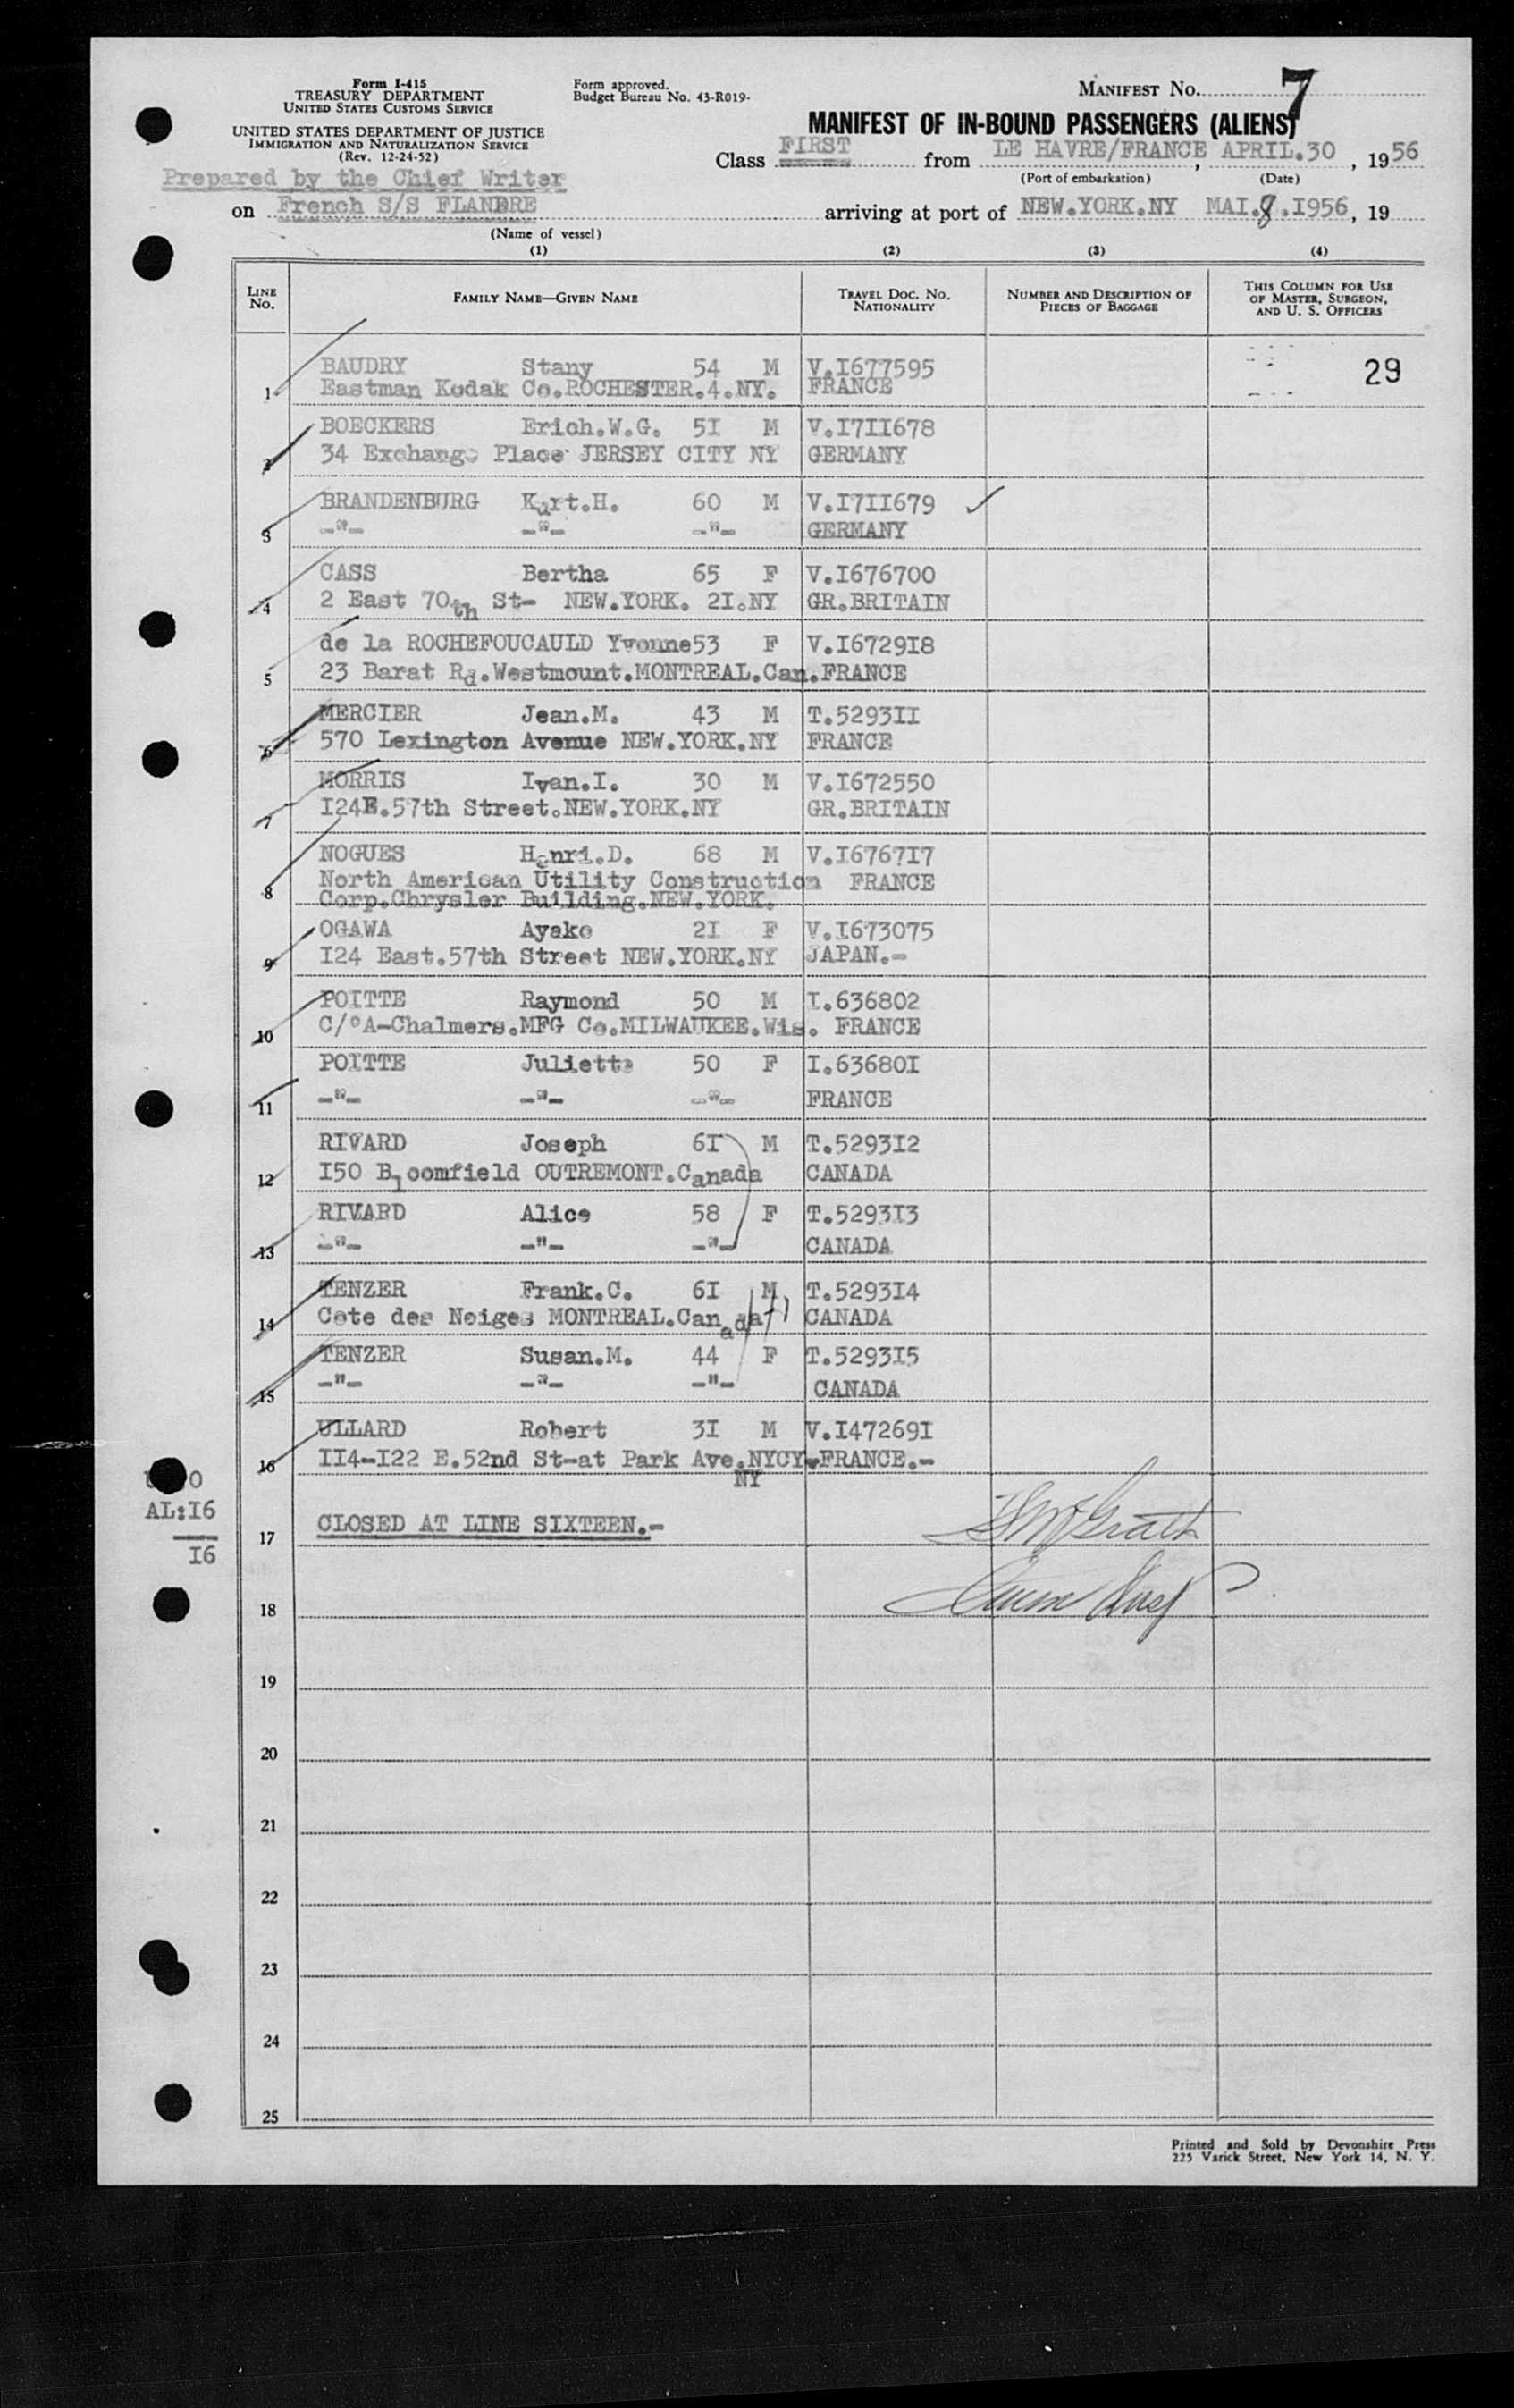 Form I-415
TREASURY DEPARTMENT
UNITED STATES CUSTOMS SERVICE
UNITED STATES DEPARTMENT OF JUSTICE
IMMIGRATION AND NATURALIZATION SERVICE
(Rev. 12-24-52)
Form approved.
Budget Bureau No. 43-R019-
MANIFEST NO. 7
MANIFEST OF IN-BOUND PASSENGERS (ALIENS)
Class FIRST from LE HAVRE/FRANCE , APRIL.30 , 1956
(Port of embarkation) (Date)
Prepared by the Chief Writer
on French S/S FLANDRE arriving at port of NEW.YORK.NY MAI.8.I956, 19
(Name of vessel)
(1) (2) (3) (4)
LINE No. FAMILY NAME—GIVEN NAME TRAVEL DOC. NO. NATIONALITY NUMBER AND DESCRIPTION OF PIECES OF BAGGAGE THIS COLUMN FOR USE OF MASTER, SURGEON, AND U. S. OFFICERS
BAUDRY Stany 54 M V.I677595 29
1 Eastman Kodak Co.ROCHESTER.4.NY. FRANCE
BOECKERS Erich.W.G. 5I M V.I7II678
2 34 Exchange Place JERSEY CITY NY GERMANY
BRANDENBURG Kurt.H. 60 M V.I7II679
3 -"- -"- -"- GERMANY
CASS Bertha 65 F V.I676700
4 2 East 70th St- NEW.YORK. 2I.NY GR.BRITAIN
de la ROCHEFOUCAULD Yvonne53 F V.I6729I8
5 23 Barat Rd.Westmount.MONTREAL.Can.FRANCE
MERCIER Jean.M. 43 M T.5293II
6 570 Lexington Avenue NEW.YORK.NY FRANCE
MORRIS Ivan.I. 30 M V.I672550
7 I24E.57th Street.NEW.YORK.NY GR.BRITAIN
NOGUES Henri.D. 68 M V.I6767I7
8 North American Utility Construction FRANCE
Corp.Chrysler Building.NEW.YORK.
OGAWA Ayako 2I F V.I673075
9 I24 East.57th Street NEW.YORK.NY JAPAN.-
POITTE Raymond 50 M I.636802
10 C/°A-Chalmers.MFG Co.MILWAUKEE.Wis. FRANCE
POITTE Juliette 50 F I.63680I
11 -"- -"- -"- FRANCE
RIVARD Joseph 6I M T.5293I2
12 I50 Bloomfield OUTREMONT.Canada CANADA
RIVARD Alice 58 F T.5293I3
13 -"- -"- -"- CANADA
TENZER Frank.C. 6I M T.5293I4
14 Cote des Neiges MONTREAL.Canada CANADA
TENZER Susan.M. 44 F T.5293I5
15 -"- -"- -"- CANADA
ULLARD Robert 3I M V.I47269I
16 II4-I22 E.52nd St-at Park Ave.NYCY.FRANCE.-
NY
AL:I6
I6
17 CLOSED AT LINE SIXTEEN.-
18
19
20
21
22
23
24
25
Printed and Sold by Devonshire Press
225 Varick Street, New York 14, N. Y.